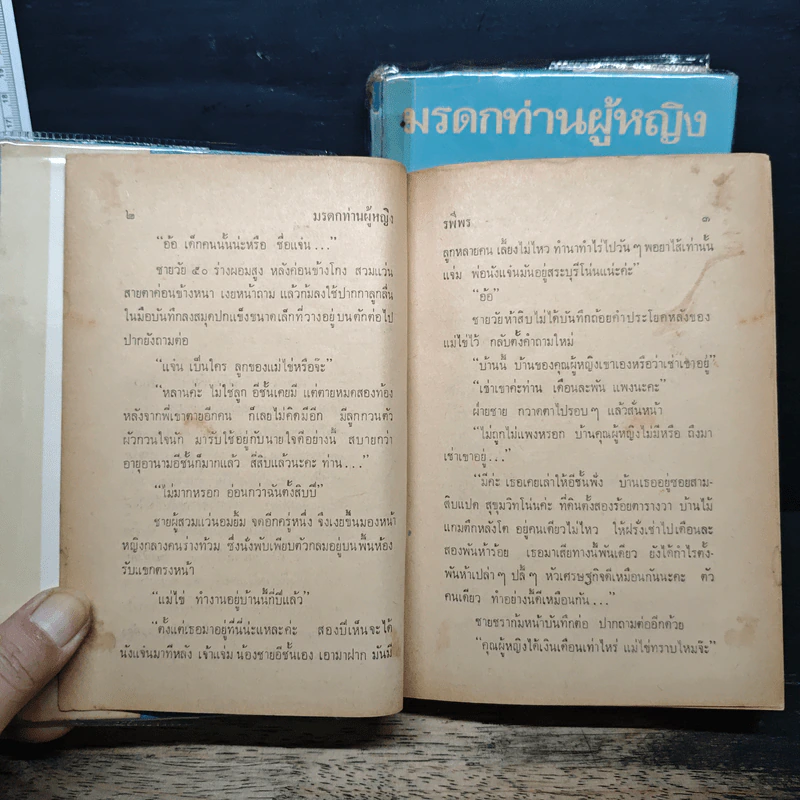 มรดกท่านผู้หญิง
๒ มรดกท่านผู้หญิง
“อ้อ เด็กคนนั้นน่ะหรือ ชื่อแจ๋น...”
ชายวัย ๕๐ ร่างผอมสูง หลังค่อนข้างโกง สวมแว่น
สายตาค่อนข้างหนา เงยหน้าถาม แล้วก้มลงใช้ปากกาลูกลื่น
ในมือบันทึกลงสมุดปกแข็งขนาดเล็กที่วางอยู่บนตักต่อไป
ปากยังถามต่อ
“แจ๋น เป็นใคร ลูกของแม่ไข่หรือจ๊ะ”
“หลานค่ะ ไม่ใช่ลูก อีชั้นเคยมี แต่ตายหมดสองท้อง
หลังจากพี่เขาตายอีกคน ก็เลยไม่คิดมีอีก มีลูกกวนตัว
ผัวกวนใจนัก มารับใช้อยู่กับนายใจดีอย่างนี้ สบายกว่า
อายุอานามอีชั้นก็มากแล้ว สี่สิบแล้วนะคะ ท่าน...”
“ไม่มากหรอก อ่อนกว่าฉันตั้งสิบปี”
ชายผู้สวมแว่นอมยิ้ม จดอีกครู่หนึ่ง จึงเงยขึ้นมองหน้า
หญิงกลางคนร่างท้วม ซึ่งนั่งพับเพียบตัวกลมอยู่บนพื้นห้อง
รับแขกตรงหน้า
“แม่ไข่ ทำงานอยู่บ้านนี้กี่ปีแล้ว”
“ตั้งแต่เธอมาอยู่ที่นี่น่ะแหละค่ะ สองปีเห็นจะได้
นังแจ๋นมาทีหลัง เจ้าแจ่ม น้องชายอีชั้นเอง เอามาฝาก มันมี
รพีพร ๓
ลูกหลายคน เลี้ยงไม่ไหว ทำนาทำไร่ไปวันๆ พอยาไส้เท่านั้น
แจ่ม พ่อนังแจ๋นมันอยู่สระบุรีโน่นแน่ะค่ะ”
“อ้อ”
ชายวัยห้าสิบไม่ได้บันทึกถ้อยคำประโยคหลังของ
แม่ไข่ไว้ กลับตั้งคำถามใหม่
“บ้านนี้ บ้านของคุณผู้หญิงเขาเองหรือว่าเช่าเขาอยู่”
“เช่าเขาค่ะท่าน เดือนละพัน แพงนะคะ”
ฝ่ายชาย กวาดตาไปรอบๆ แล้วสั่นหน้า
“ไม่ถูกไม่แพงหรอก บ้านคุณผู้หญิงไม่มีหรือ ถึงมา
เช่าเขาอยู่...”
“มีค่ะ เธอเคยเล่าให้อีชั้นฟัง บ้านเธออยู่ซอยสาม-
สิบแปด สุขุมวิทโน่นค่ะ ที่ดินตั้งสองร้อยตารางวา บ้านไม้
แกมตึกหลังโต อยู่คนเดียวไม่ไหว ให้ฝรั่งเช่าไปเดือนละ
สองพันห้าร้อย เธอมาเสียทางนี้พันเดียว ยังได้กำไรตั้ง-
พันห้าเปล่าๆ ปลี้ๆ หัวเศรษฐกิจดีเหมือนกันนะคะ ตัว
คนเดียว ทำอย่างนี้ดีเหมือนกัน...”
ชายชราก้มหน้าบันทึกต่อ ปากถามต่ออีกด้วย
“คุณผู้หญิงได้เงินเดือนเท่าไหร่ แม่ไข่ทราบไหมจ๊ะ”